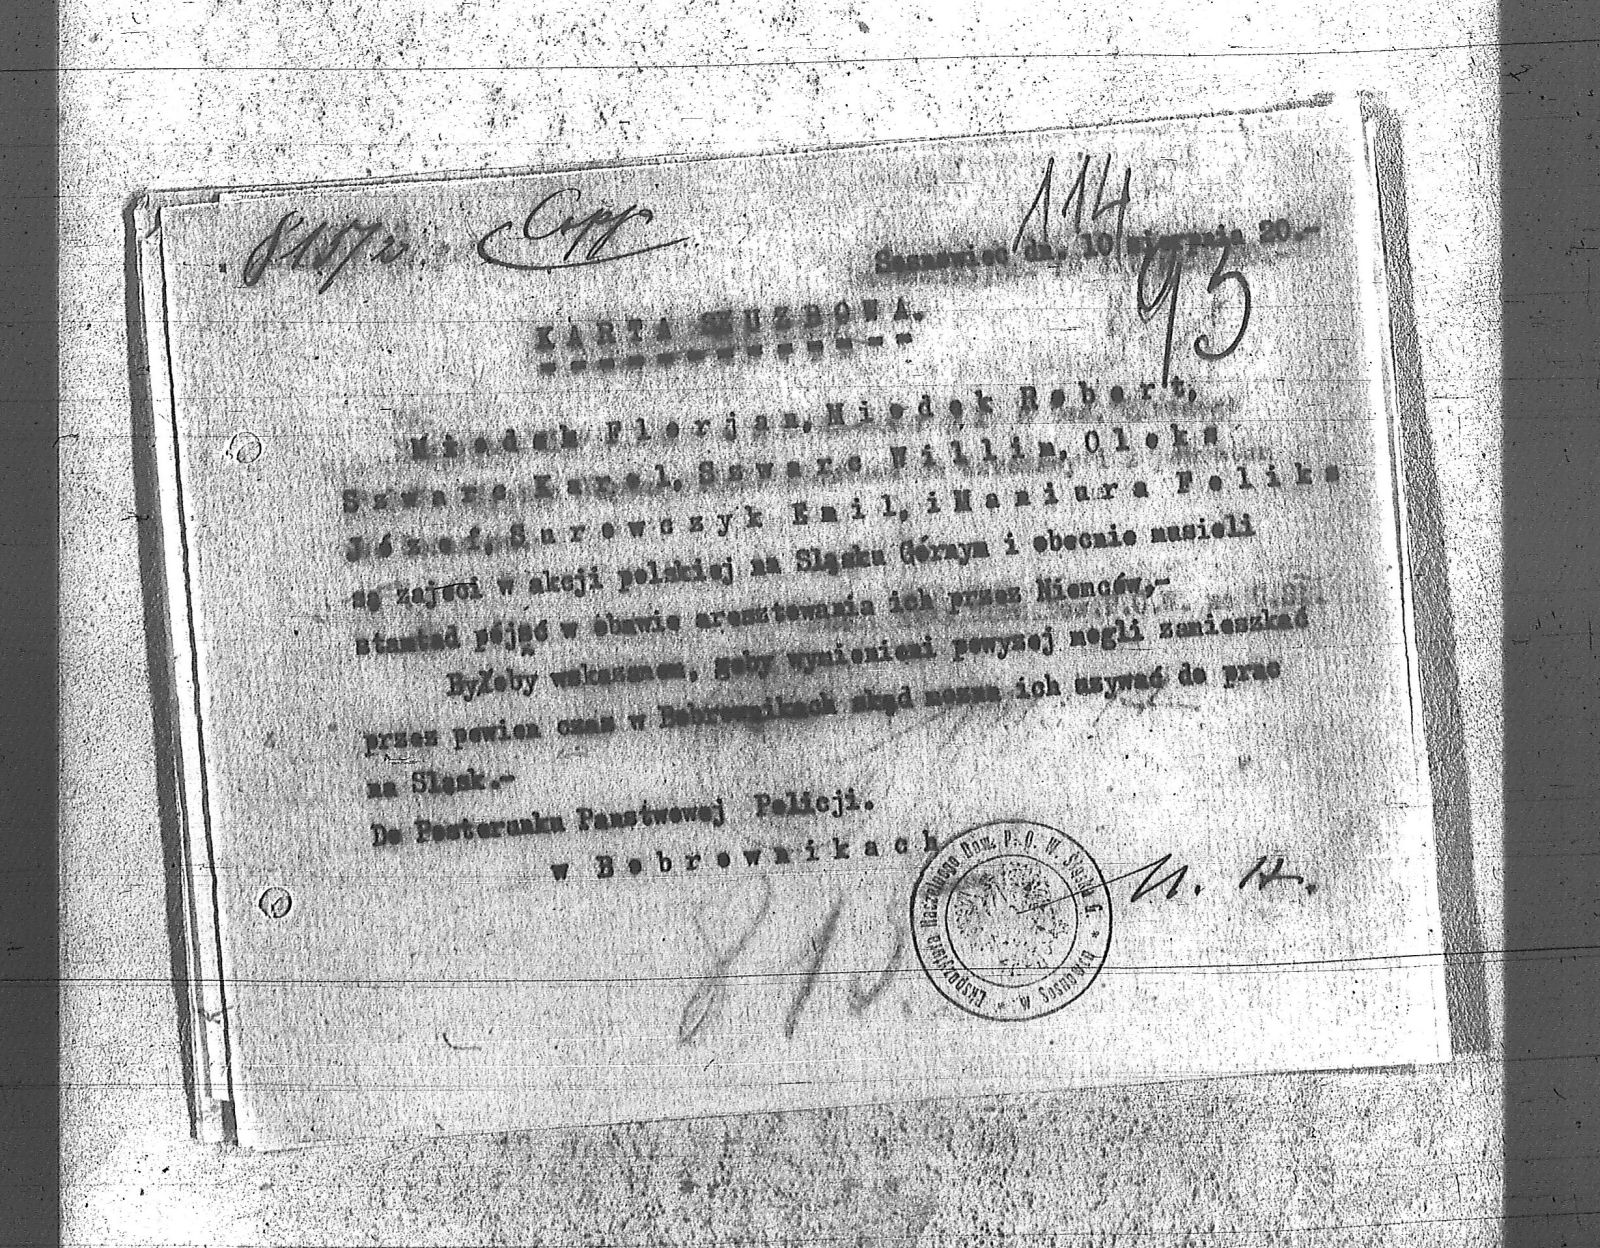 114
Sosnowiec dn. 10 sierpnia 20.-
93
KARTA SŁUZBOWA.
Florjan, Miedek Robert,
Szware Karol, Szware Willim, Oleks
Józef, Surowczyk Emil, i Maniura Feliks
są zajęci w akcji polskiej na Sląsku Górnym i obecnie musieli
stamtad pójść w obawie aresztowania ich przez Niemców,-
Byłoby wskazanem, geby wymienieni powyzej mogli zamieszkać
przez pewien czas w Bobrownikach skąd mozna ich uzywać do prac
na Sląsk.-
Do Posterunku Panstwowej Policji.
w Bobrownikach
Ekspozytura Naczelnego Dow. P. O. W. Śląska G. * w Sosnowcu *